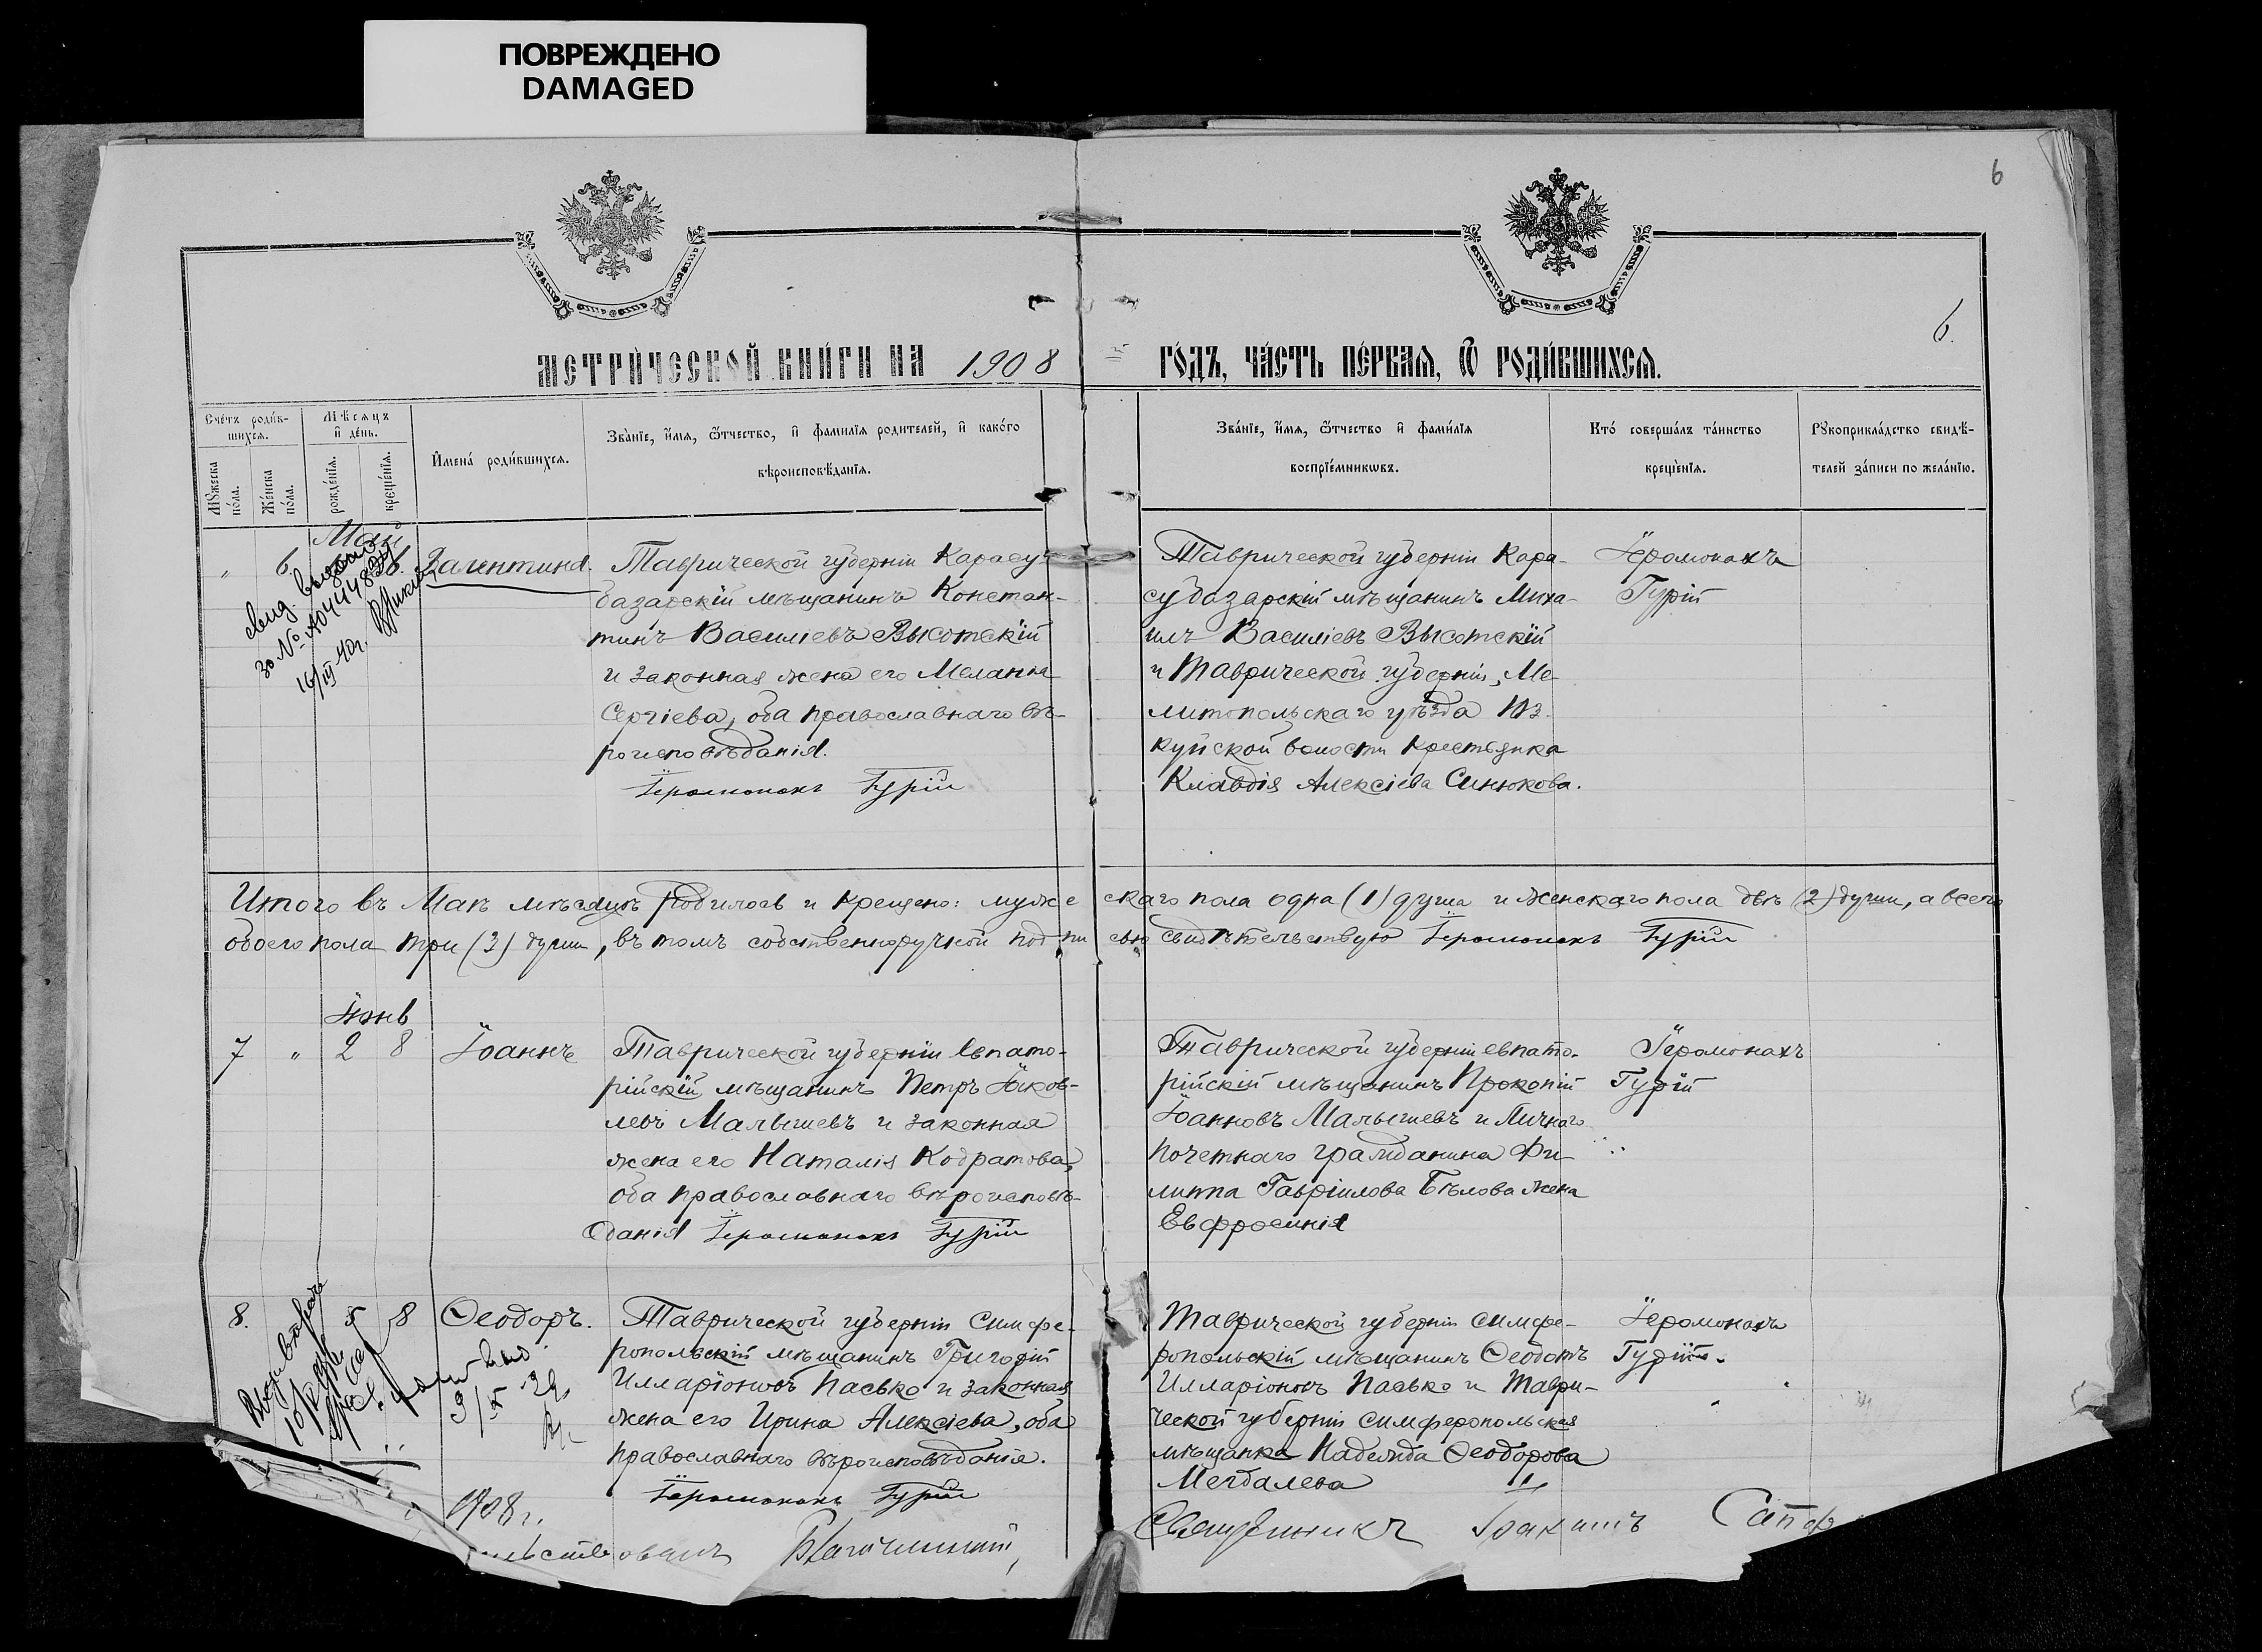 ПОВРЕЖДЕНО
DAMAGED
6
6.
МЕТРИЧЕСКОЙ КНИГИ НА 1908 ГОДЪ, ЧАСТЬ ПЕРВАЯ, Ѿ РОДИВШИХСЯ.
Счетъ родив-
шихся.
Мужеска пола.
Женска пола.
Мѣсяцъ и день.
рождения.
крещенія.
Имена родившихся.
Званіе, имя, ѿтчество, и фамилія родителей, и какого
вѣроисповѣданія.
Званіе, имя, ѿтчество и фамилія
воспріемниковъ.
Кто совершалъ таинство
крещенія.
Рукоприкладство свидѣ-
телей записи по желанію.
Май
" 6. Валентина.
свид. выдано
за №
16/III 40г.
Таврической губерніи Карасу-
базарскій мѣщанинъ Констан-
тинъ Василіевъ Высотскій
и законная жена его Меланія
Сергіева, оба православнаго вѣ-
роисповѣданія.
Іеромонахъ Гурій
Таврической губерніи Кара-
субазарскій мѣщанинъ Миха-
илъ Василіевъ Высотскій
и Таврической губерніи, Ме-
литопольскаго уѣзда Юз-
куйской волости крестьянка
Клавдія Алексіева Синюкова.
Іеромонахъ
Гурій
Итого въ Маѣ мѣсяцѣ родилось и крещено: мужескаго пола одна (1) душа и женскаго пола двѣ (2) души, а всего
обоего пола три (3) души, въ томъ собственноручной подписью свидѣтельствую Іеромонахъ Гурій
Іюнь
7 " 2 8 Іоаннъ
Таврической губерніи Евпато-
рійскій мѣщанинъ Петръ Іаков-
левъ Малышевъ и законная
жена его Наталія Кодратова,
оба православнаго вѣроисповѣ-
данія Іеромонахъ Гурій
Таврической губерніи евпато-
рійскій мѣщанинъ Прокопій
Іоанновъ Малышевъ и Личнаго
почетнаго гражданина Фи-
липпа Гавріилова Бѣлова жена
Евфросинія
Іеромонахъ
Гурій
8. 5 8 Ѳеодоръ.
9/X 29
Таврической губерніи Симфе-
ропольскій мѣщанинъ Григорій
Илларіоновъ Пасько и законная
жена его Ирина Алексіева, оба
православнаго вѣроисповѣданія.
Іеромонахъ Гурій
Таврической губерніи симфе-
ропольскій мѣщанинъ Ѳеодотъ
Илларіоновъ Пасько и Таври-
ческой губерніи симферопольская
мѣщанка Надежда Ѳеодорова
Мегдалева
Іеромонахъ
Гурій.
1908 г.
Благочинный, Священникъ Іоакимъ